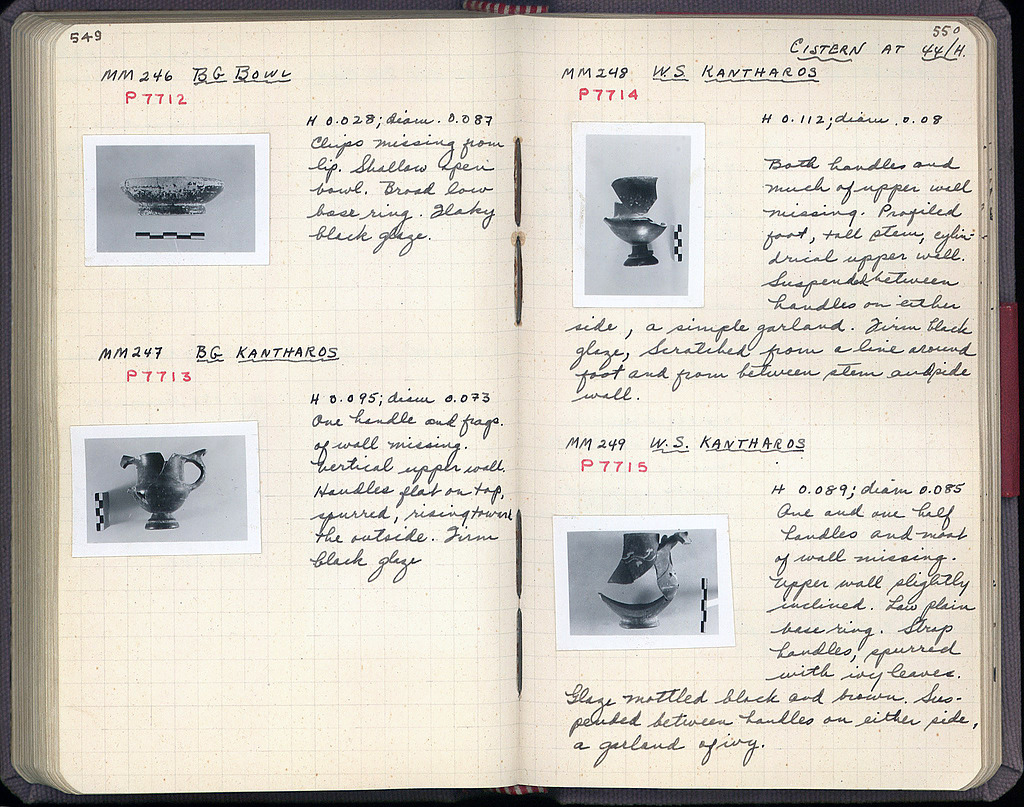 549
MM 246 BG BOWL
P 7712
H 0.028; diam. 0.087
Chips missing from
lip. Shallow open
bowl. Broad low
base ring. Flaky
black glaze.
MM 247 BG KANTHAROS
P 7713
H 0.095; diam 0.073
One handle and frags.
of wall missing.
Vertical upper wall.
Handles flat on top,
spurred, rising toward
the outside. Firm
black glaze
550
CISTERN AT 44/H.
MM 248 W.S. KANTHAROS
P 7714
H 0.112; diam 0.08
Both handles and
much of upper wall
missing. Profiled
foot, tall stem, cylin-
drical upper wall.
Suspended between
handles on either
side, a simple garland. Firm black
glaze, scratched from a line around
foot and from between stem and side
wall.
MM 249 W.S. KANTHAROS
P 7715
H 0.089; diam 0.085
One and one half
handles and most
of wall missing.
Upper wall slightly
inclined. Low plain
base ring. Strap
handles, spurred
with ivy leaves.
Glaze mottled black and brown. Sus-
pended between handles on either side,
a garland of ivy.